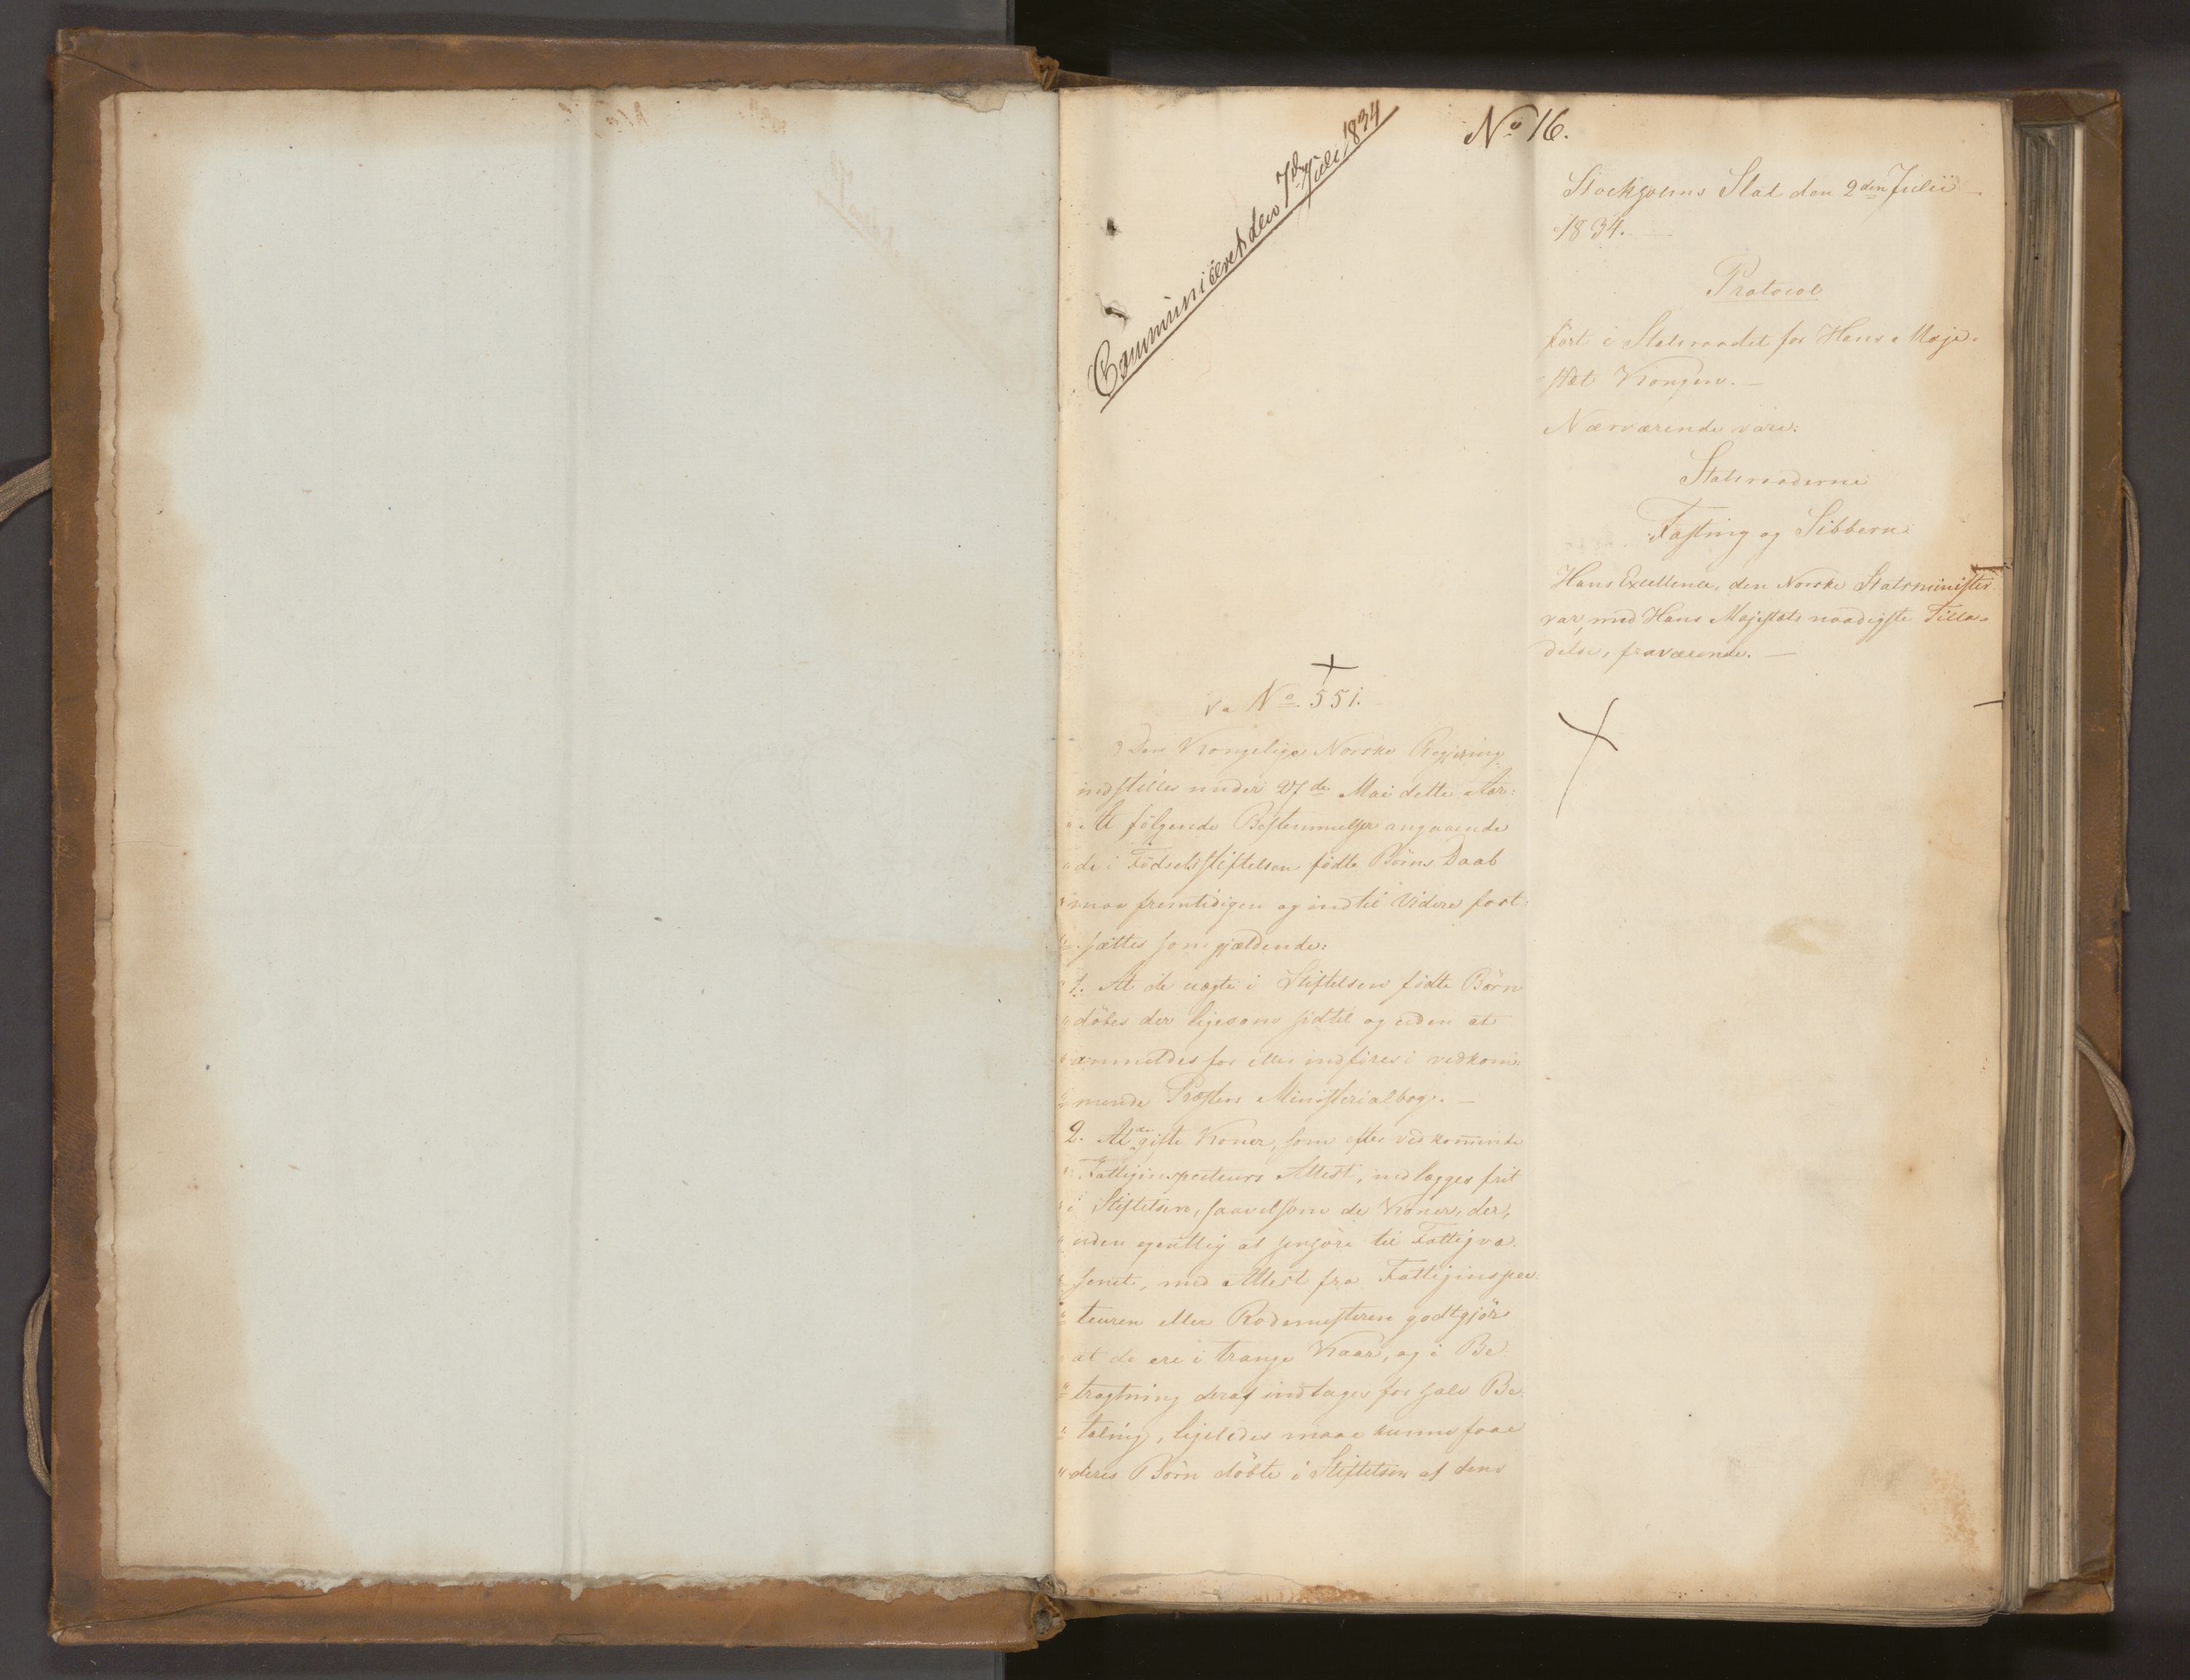 Communiceret den 7de Juli 1834
No 16.
Stockholms Slot den 2den Julii
1834.
Protocol
fört i Statsraadet for Hans Maje-
stæt Kongen.
Nærværende vare:
Statsraaderne
Fasting og Sibbern
Hans Excellence, den Norske Statsminister
var, med Hans Majestæts naadigste Tilla-
delse, fraværende.
No. 551.
Den Kongelige Norske Regjering
indstiller under 27de Mai dette Aar:
"At fölgende Bestemmelser angaaende
"de i Födselsstiftelsen födte Börns Daab
"maa fremtidigen og indtil Videre fast-
"sættes som gjældende:
"1. At de uægte i Stiftelsen födte Börn
"döbes der ligesom hidtil og uden at
"anmeldes for eller indföres i vedkom-
"mende Præstes Ministerialbog.
2. At de gifte Koner, som efter vedkommende
"Fattiginspecteurs Attest, indlægges frit
"i Stiftelsen, saavelsom de Koner, der,
"uden egentlig at henhöre til Fattigvæ-
"senet, med Attest fra Fattiginspec-
"teuren eller Rodemesteren godtgjör
"at de ere i trange Kaar, og i Be-
"tragtning deraf indtages for halv Be-
"taling, ligeledes maae kunne faae
"deres Börn döbte i Stiftelsen af dens